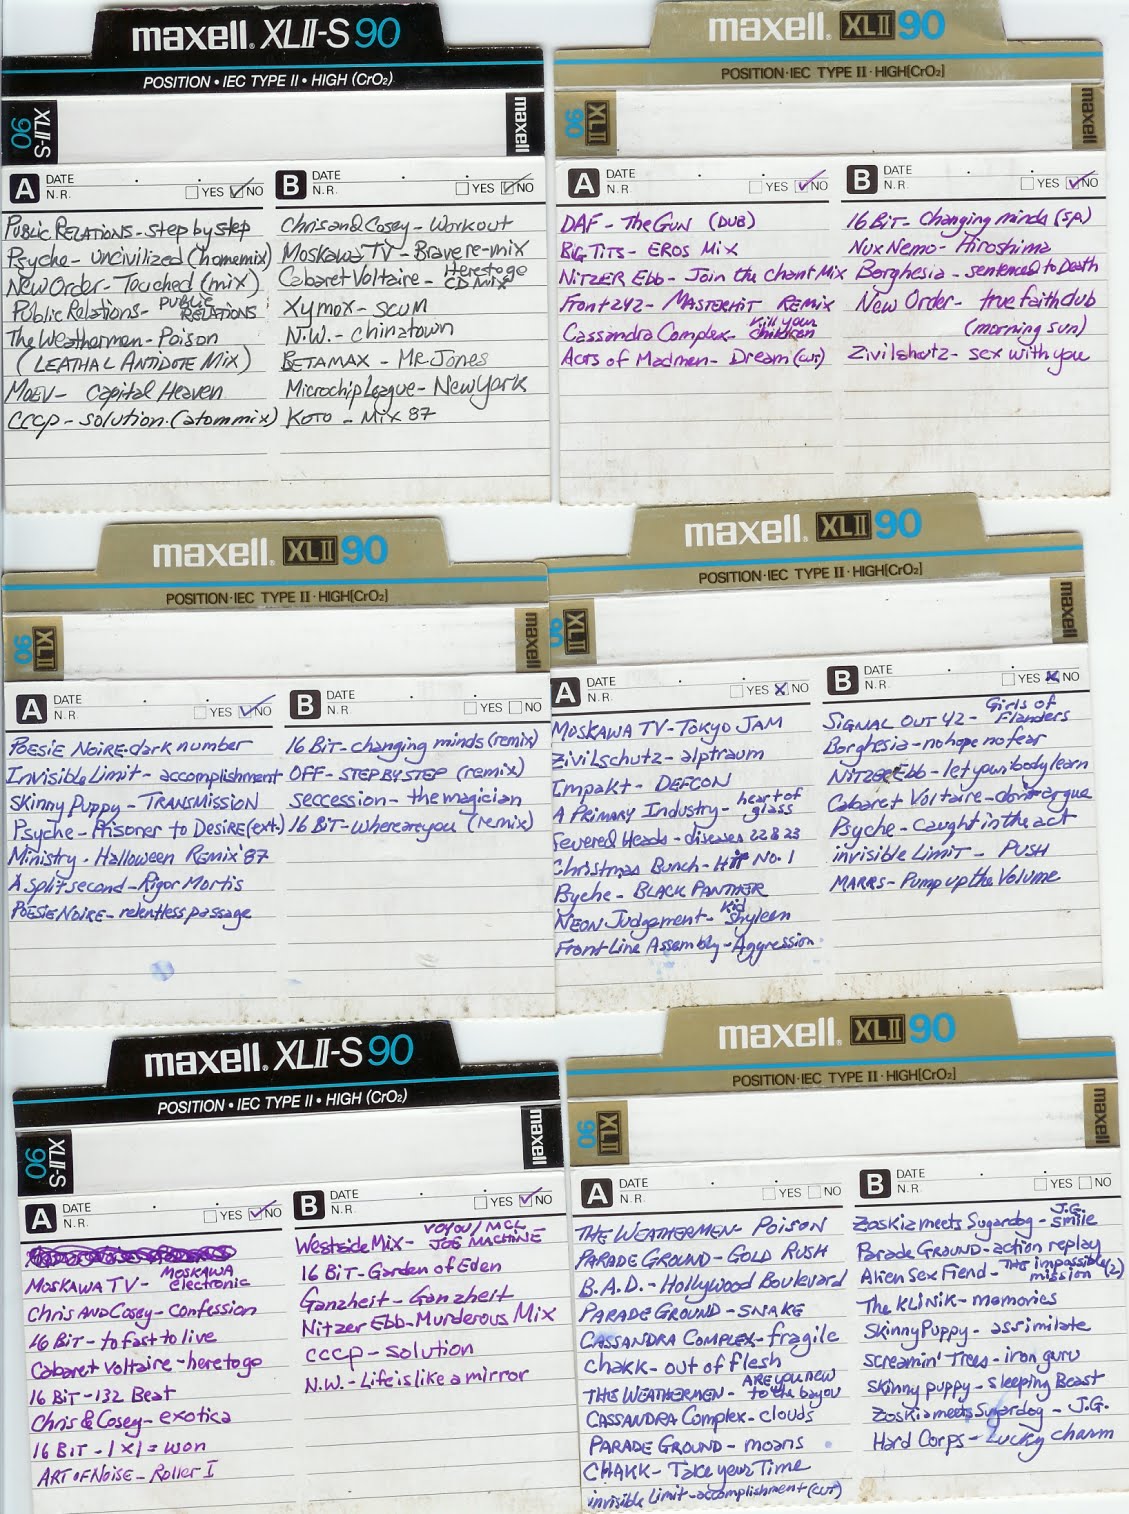 maxell. XLII-S 90
POSITION • IEC TYPE II • HIGH (CrO2)
XLII-S 90
maxell
A DATE
N.R. YES NO
PUBLIC RELATIONS - step by step
Psyche - uncivilized (homemix)
New Order - Touched (mix)
Public Relations - PUBLIC RELATIONS
The Weatherman - Poison
(LEATHAL ANTIDOTE MIX)
MOEV - Capital Heaven
CCCP - solution. (atom mix)
B DATE
N.R. YES NO
Chris and Cosey - Workout
Moskawa TV - Brave re-mix
Cabaret Voltaire - Herestogo CD MIX
Xymox - scum
N.W. - chinatown
BETAMAX - Mr. Jones
Microchip League - New York
KOTO - MiX 87
maxell. XLII 90
POSITION·IEC TYPE II·HIGH[CrO2]
XLII 90
maxell
A DATE
N.R. YES NO
DAF - The GUN (DUB)
BIG TITS - EROS MiX
NITZER Ebb - Join the chant Mix
Front 242 - MASTERHIT REMIX
Cassandra Complex - kill your children
Acts of Madmen - Dream (cut)
B DATE
N.R. YES NO
16 BiT - Changing minds (SA)
Nux Nemo - Hiroshima
Borghesia - sentenced to Death
New Order - true faith dub
(morning sun)
Zivilshutz - sex with you
maxell. XLII 90
POSITION·IEC TYPE II·HIGH[CrO2]
XLII 90
maxell
A DATE
N.R YES NO
POESIE NOIRE - dark number
Invisible Limit - accomplishment
Skinny Puppy - TRANSMISSION
Psyche - Prisoner to DESIRE (ext.)
Ministry - Halloween REMIX '87
A Split second - Rigor Mortis
POESIE NOIRE - relentless passage
B DATE
N.R. YES NO
16 BiT - changing minds (remix)
OFF - STEP BY STEP (remix)
seccession - the magician
16 BiT - where are you (remix)
maxell. XLII 90
POSITION·IEC TYPE II·HIGH[CrO2]
XLII 90
maxell
A DATE
N.R. YES NO
MOSKAWA TV - TOKYO JAM
Zivilschutz - alptraum
Impakt - DEFCON
A PRIMARY Industry - heart of glass
Severed Heads - diseases 22 & 23
Christmas Bunch - Hit No. 1
Psyche - BLACK PANTHER
NEON Judgement - Kid Shyleen
Front Line Assembly - Aggression
B DATE
N.R. YES NO
SiGNAL OUT 42 - Girls of Flanders
Borghesia - no hope no fear
NITZER Ebb - let your body learn
Cabaret Voltaire - don't argue
Psyche - Caught in the act
invisible LIMIT - PUSH
MARRS - Pump up the Volume
maxell. XLII-S 90
POSITION • IEC TYPE II • HIGH (CrO2)
XLII-S 90
maxell
A DATE
N.R. YES NO
MOSKAWA TV - MOSKAWA electronic
Chris AND Cosey - confession
16 BiT - to fast to live
Cabaret Voltaire - here to go
16 BIT - 132 Beat
Chris & Cosey - exotica
16 BiT - 1 X 1 = won
ART OF NOISE - Roller I
B DATE
N.R. YES NO
Westside Mix - VOYOU / MCL JOB MACHINE
16 BiT - Garden of Eden
Ganzheit - Ganzheit
Nitzer Ebb - Murderous Mix
CCCP - solution
N.W. - Life is like a mirror
maxell. XLII 90
POSITION·IEC TYPE II·HIGH[CrO2]
XLII 90
maxell
A DATE
N.R. YES NO
THE WEATHERMEN - POISON
PARADE GROUND - GOLD RUSH
B.A.D. - Hollywood Boulevard
PARADE GROUND - SNAKE
CASSANDRA COMPLEX - fragile
Chakk - out of flesh
THIS WEATHERMEN - ARE YOU NEW to the bayou
CASSANDRA Complex - clouds
PARADE GROUND - moans
CHAKK - Take your Time
invisible Limit - accomplishment (cut)
B DATE
N.R. YES NO
Zoskia meets Sugardog - J.G. smile
Parade GROUND - action replay
Alien Sex Fiend - THE impossible mission (2)
The KLINIK - memories
Skinny Puppy - assimilate
Screamin' Trees - iron guru
Skinny puppy - sleeping Beast
Zoskia meets Sugardog - J.G.
Hard Corps - Lucky charm